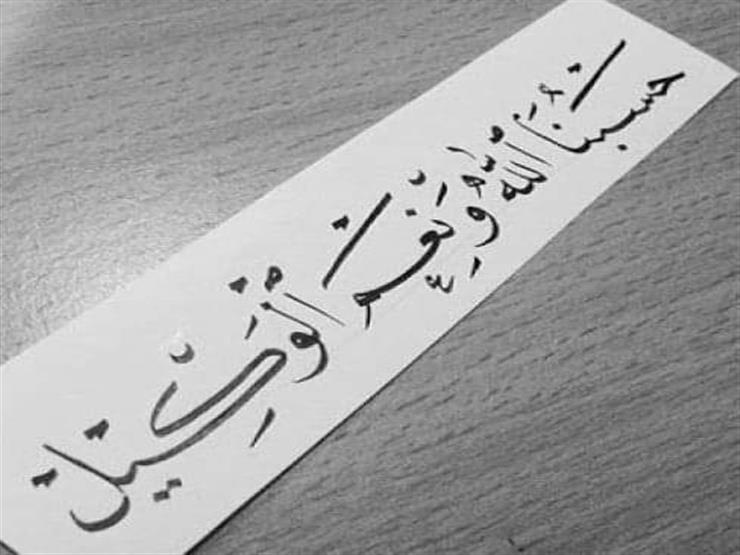 حَسْبُنَا اللّٰهُ وَنِعْمَ الْوَكِيْلُ